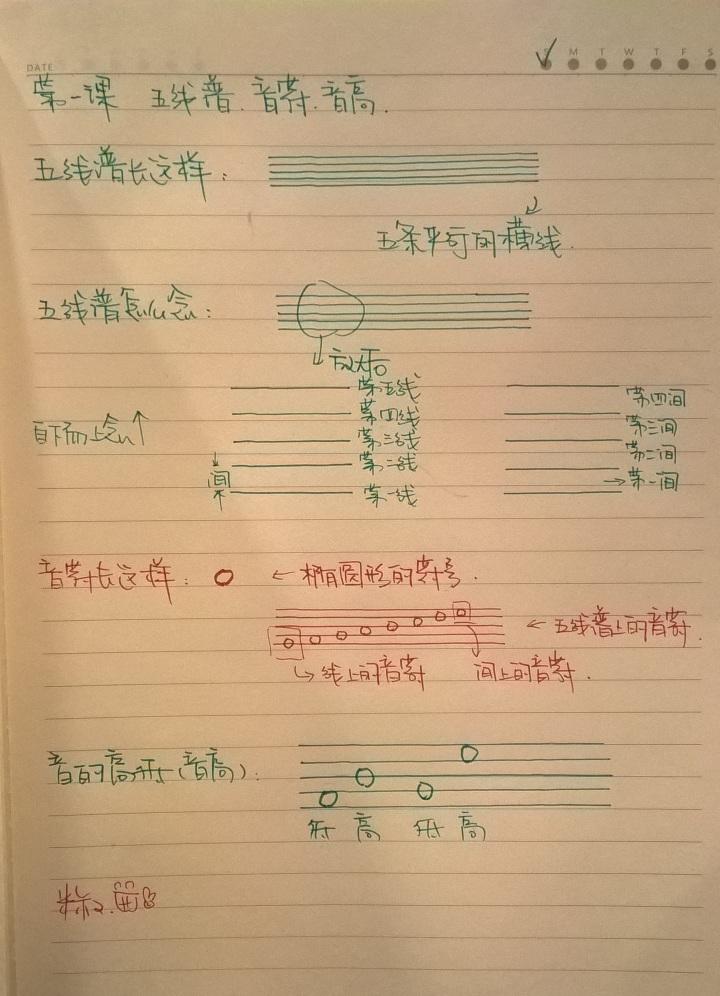 DATE
S M T W T F S
第一课 五线谱.音符.音高.
五线谱长这样:
五条平行的横线.
五线谱怎么念:
放大后
自下而上念↑
第五线
第四线
第三线
第二线
第一线
间
第四间
第三间
第二间
→第一间
音符长这样: ←椭圆形的符号.
←五线谱上的音符.
线上的音符 间上的音符.
音的高低(音高):
低 高 低 高